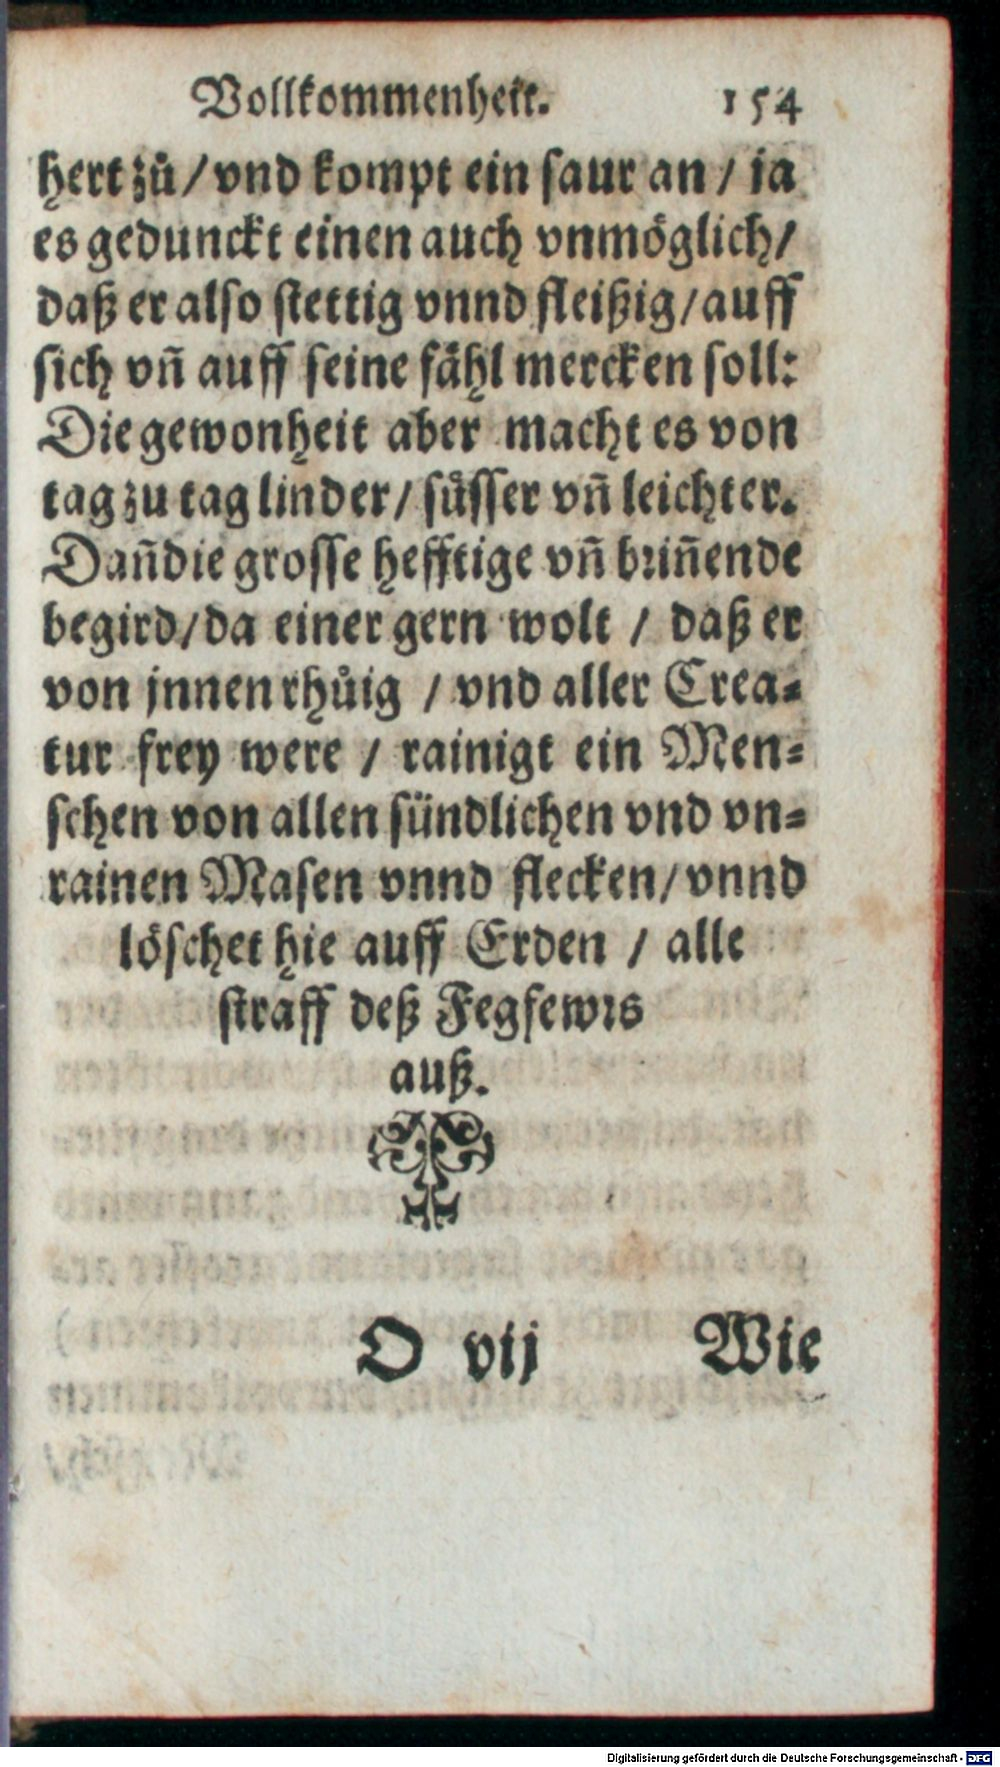 Vollkommenheit. 154
hert zů / vnd kompt ein saur an / ja
es gedunckt einen auch vnmöglich /
daß er also stettig vnnd fleißig / auff
sich vñ auff seine fähl mercken soll:
Die gewonheit aber macht es von
tag zu tag linder / süsser vñ leichter.
Dañ die grosse hefftige vñ briñende
begird / da einer gern wolt / daß er
von jnnen rhůig / vnd aller Crea⸗
tur frey were / rainigt ein Men⸗
schen von allen sündlichen vnd vn⸗
rainen Masen vnnd flecken / vnnd
löschet hie auff Erden / alle
straff deß Fegfewrs
auß.
O vij Wie
Digitalisierung gefördert durch die Deutsche Forschungsgemeinschaft - DFG